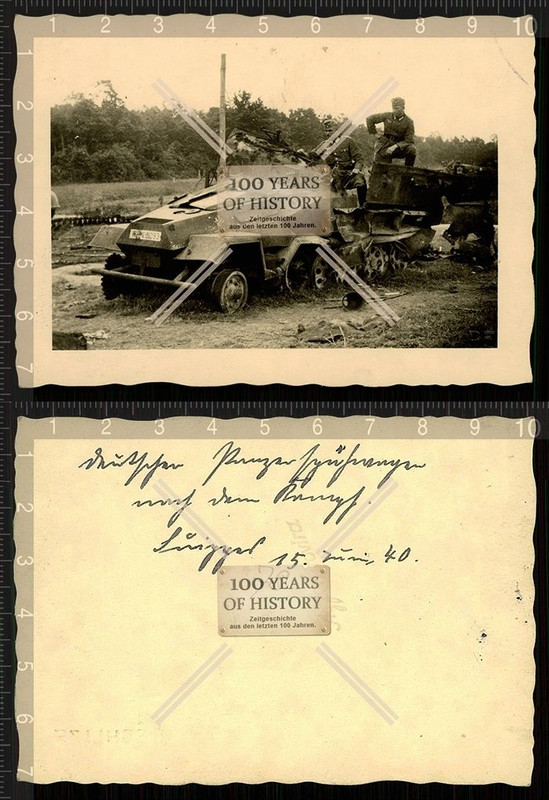 1 2 3 4 5 6 7 8 9 10
1
2
3
4
5
6
7
100 YEARS
OF HISTORY
Zeitgeschichte
aus den letzten 100 Jahren.
1 2 3 4 5 6 7 8 9 10
1
2
3
4
5
6
7
deutscher Panzerspähwagen
nach dem Kampf.
Suippes 15. Juni 40.
100 YEARS
OF HISTORY
Zeitgeschichte
aus den letzten 100 Jahren.